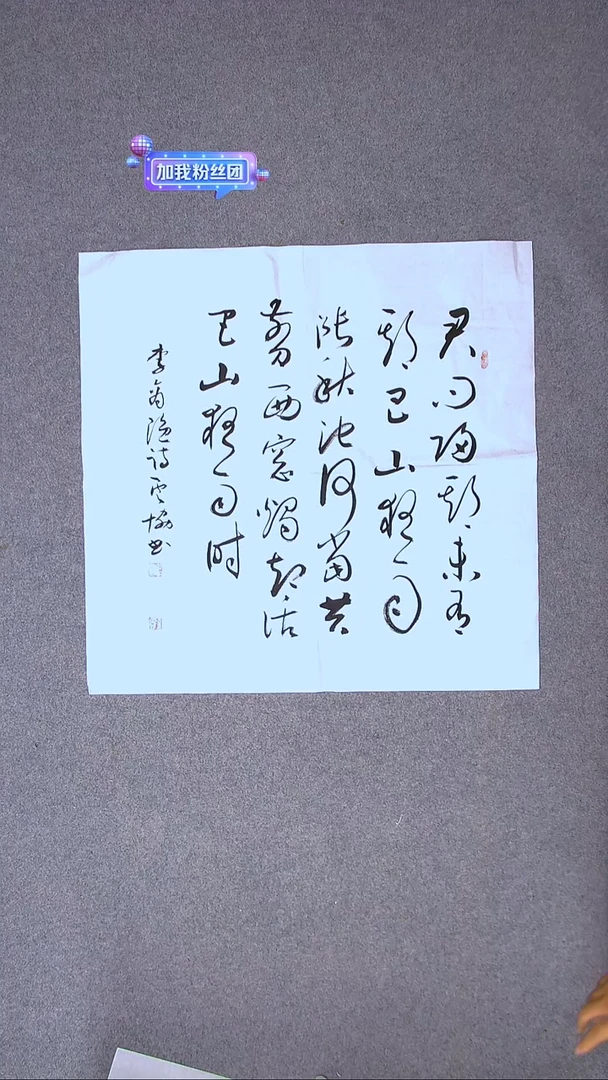 加我粉丝团
君问归期未有
期巴山夜雨
涨秋池何当共
剪西窓烛却话
巴山夜雨时
李商隐诗 书